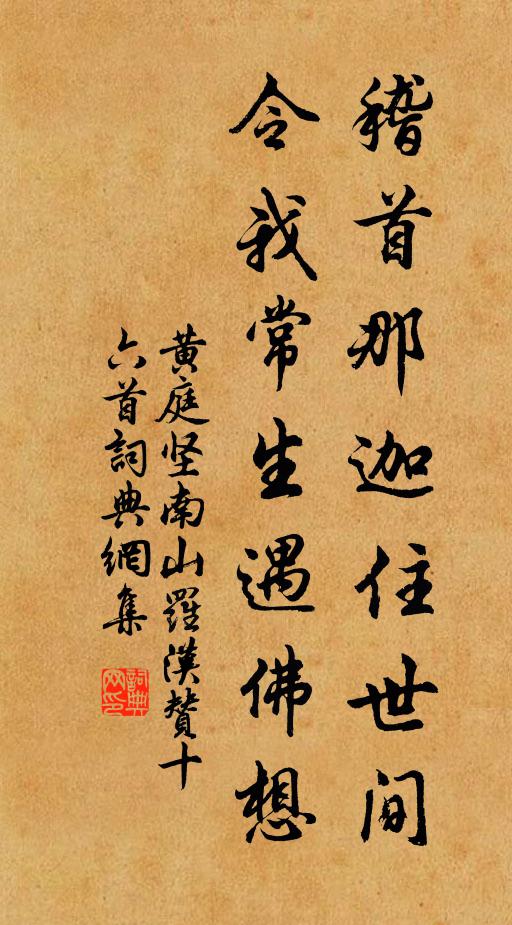 稽首那迦住世间
令我常生遇佛想
黄庭坚南山羅漢赞十
六首詞典網集
詞典
网印